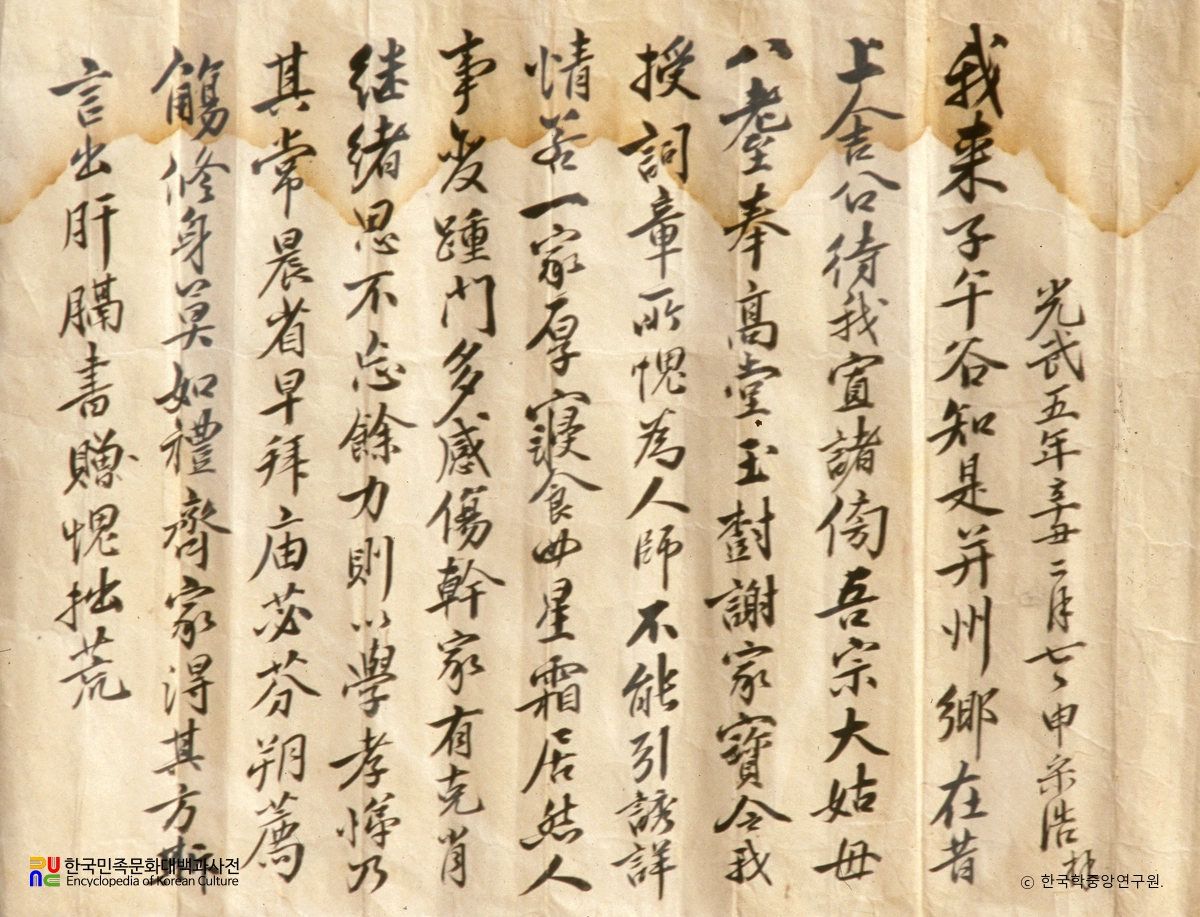 光武五年辛丑二月七日申宗浩
我來子午谷知是并州鄉在昔
上舍公待我宜諸傍吾宗大姑母
八耋奉高堂玉樹謝家寶令我
授詞章所愧為人師不能引誘詳
情若一家厚寢食廿星霜居然人
事変踵門多感傷幹家有克肖
継緒思不忘餘力則以學孝悌乃
其常晨省早拜庙苾芬朔薦
觴修身莫如禮齊家得其方斯
言出肝膈書贈愧拙荒
한국민족문화대백과사전
Encyclopedia of Korean Culture
© 한국학중앙연구원.